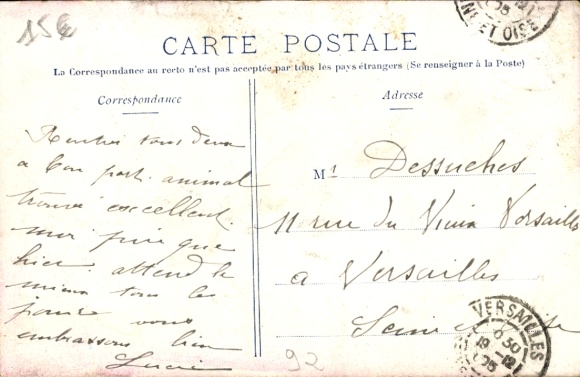 15€
CARTE POSTALE
La Correspondance au recto n'est pas acceptée par tous les pays étrangers (Se renseigner à la Poste)
Correspondance
Adresse
Rentrés tous deux
a bon port. animal
trouvé excellent.
moi pire que
hier. attend le
mieux tous les
vous
embrassons bien
Lucie
Mr Dessuches
11 rue du Vieux Versailles
a Versailles
Seine et Oise
ET OISE
VERSAILLES
19 -12
05
92